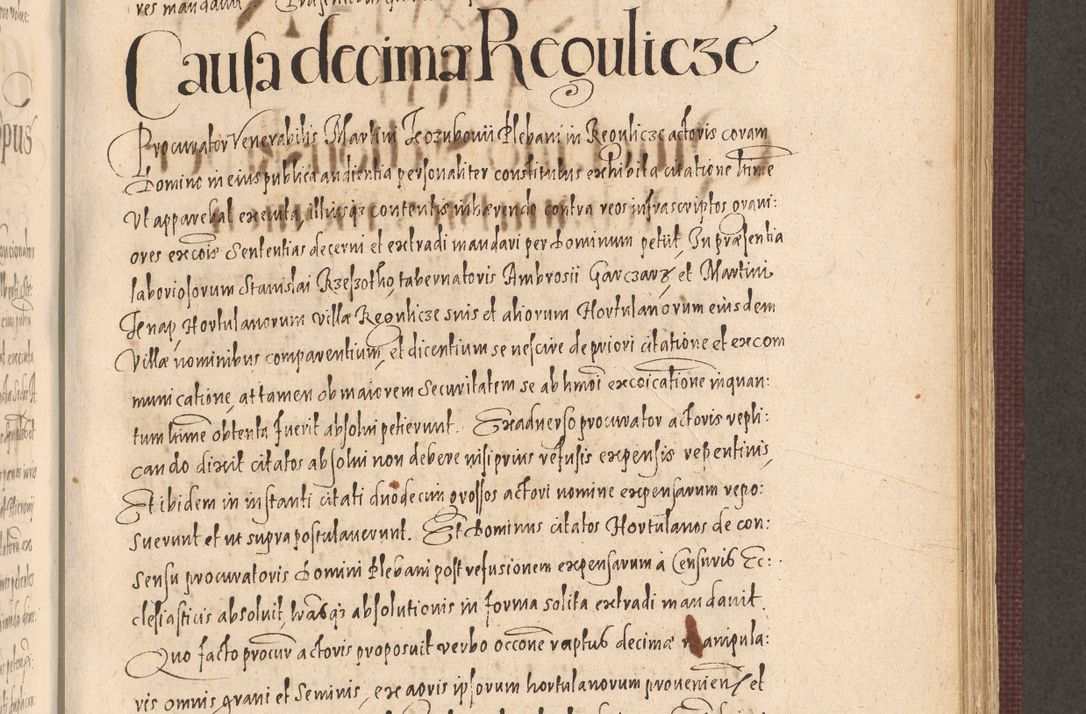 res mandavit
Causa decima Regulicze
Procurator Venerabilis Martini Kozubovii Plebani in Regulicze actoris coram
Domino in eius publica audientia personaliter constitutus exhibita citatione ltime
Ut apparebat executa, illiusq3 contentis inhærendo contra reos infrascriptos graui:
ores excois Sententias decerni et extradi mandari per Dominum petiit. In præsentia
laboriosorum Stanislai Rzeszotho, tabernatoris Ambrosii Garczarz, et Martini
Jenap, Hortulanorum Villæ Regulicze suis et aliorum Hortulanorum eiusdem
Villæ nominibus comparentium, et dicentium se nescire de priori citatione et excom
municatione, attamen ob maiorem Securitatem se ab hmoi excoicatione inquan:
tum lnime obtenta fuerit absolui petierunt. Exaduerso procurator actoris repli:
cando dixit citatos absolui non debere nisi prius refusis expensis repentinis,
Et ibidem in instanti citati duodecim grossos actori nomine expensarum repo:
suerunt et ut supra postulauerunt. Et Dominus citatos Hortulanos de con:
sensu procuratoris Domini Plebani post refusionem expensarum à Censuris Ec:
clesiasticis absoluit, lrasq3 absolutionis in forma solita extradi mandauit.
Quo facto procur actoris proposuit verbo occone raptus decimæ manipula:
ris omnis grani et Seminis, ex agris ipsorum hortulanorum prouenien, et